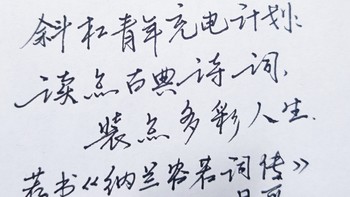 斜杠青年充电计划：
读点古典诗词，
装点多彩人生.
荐书《纳兰容若词传》